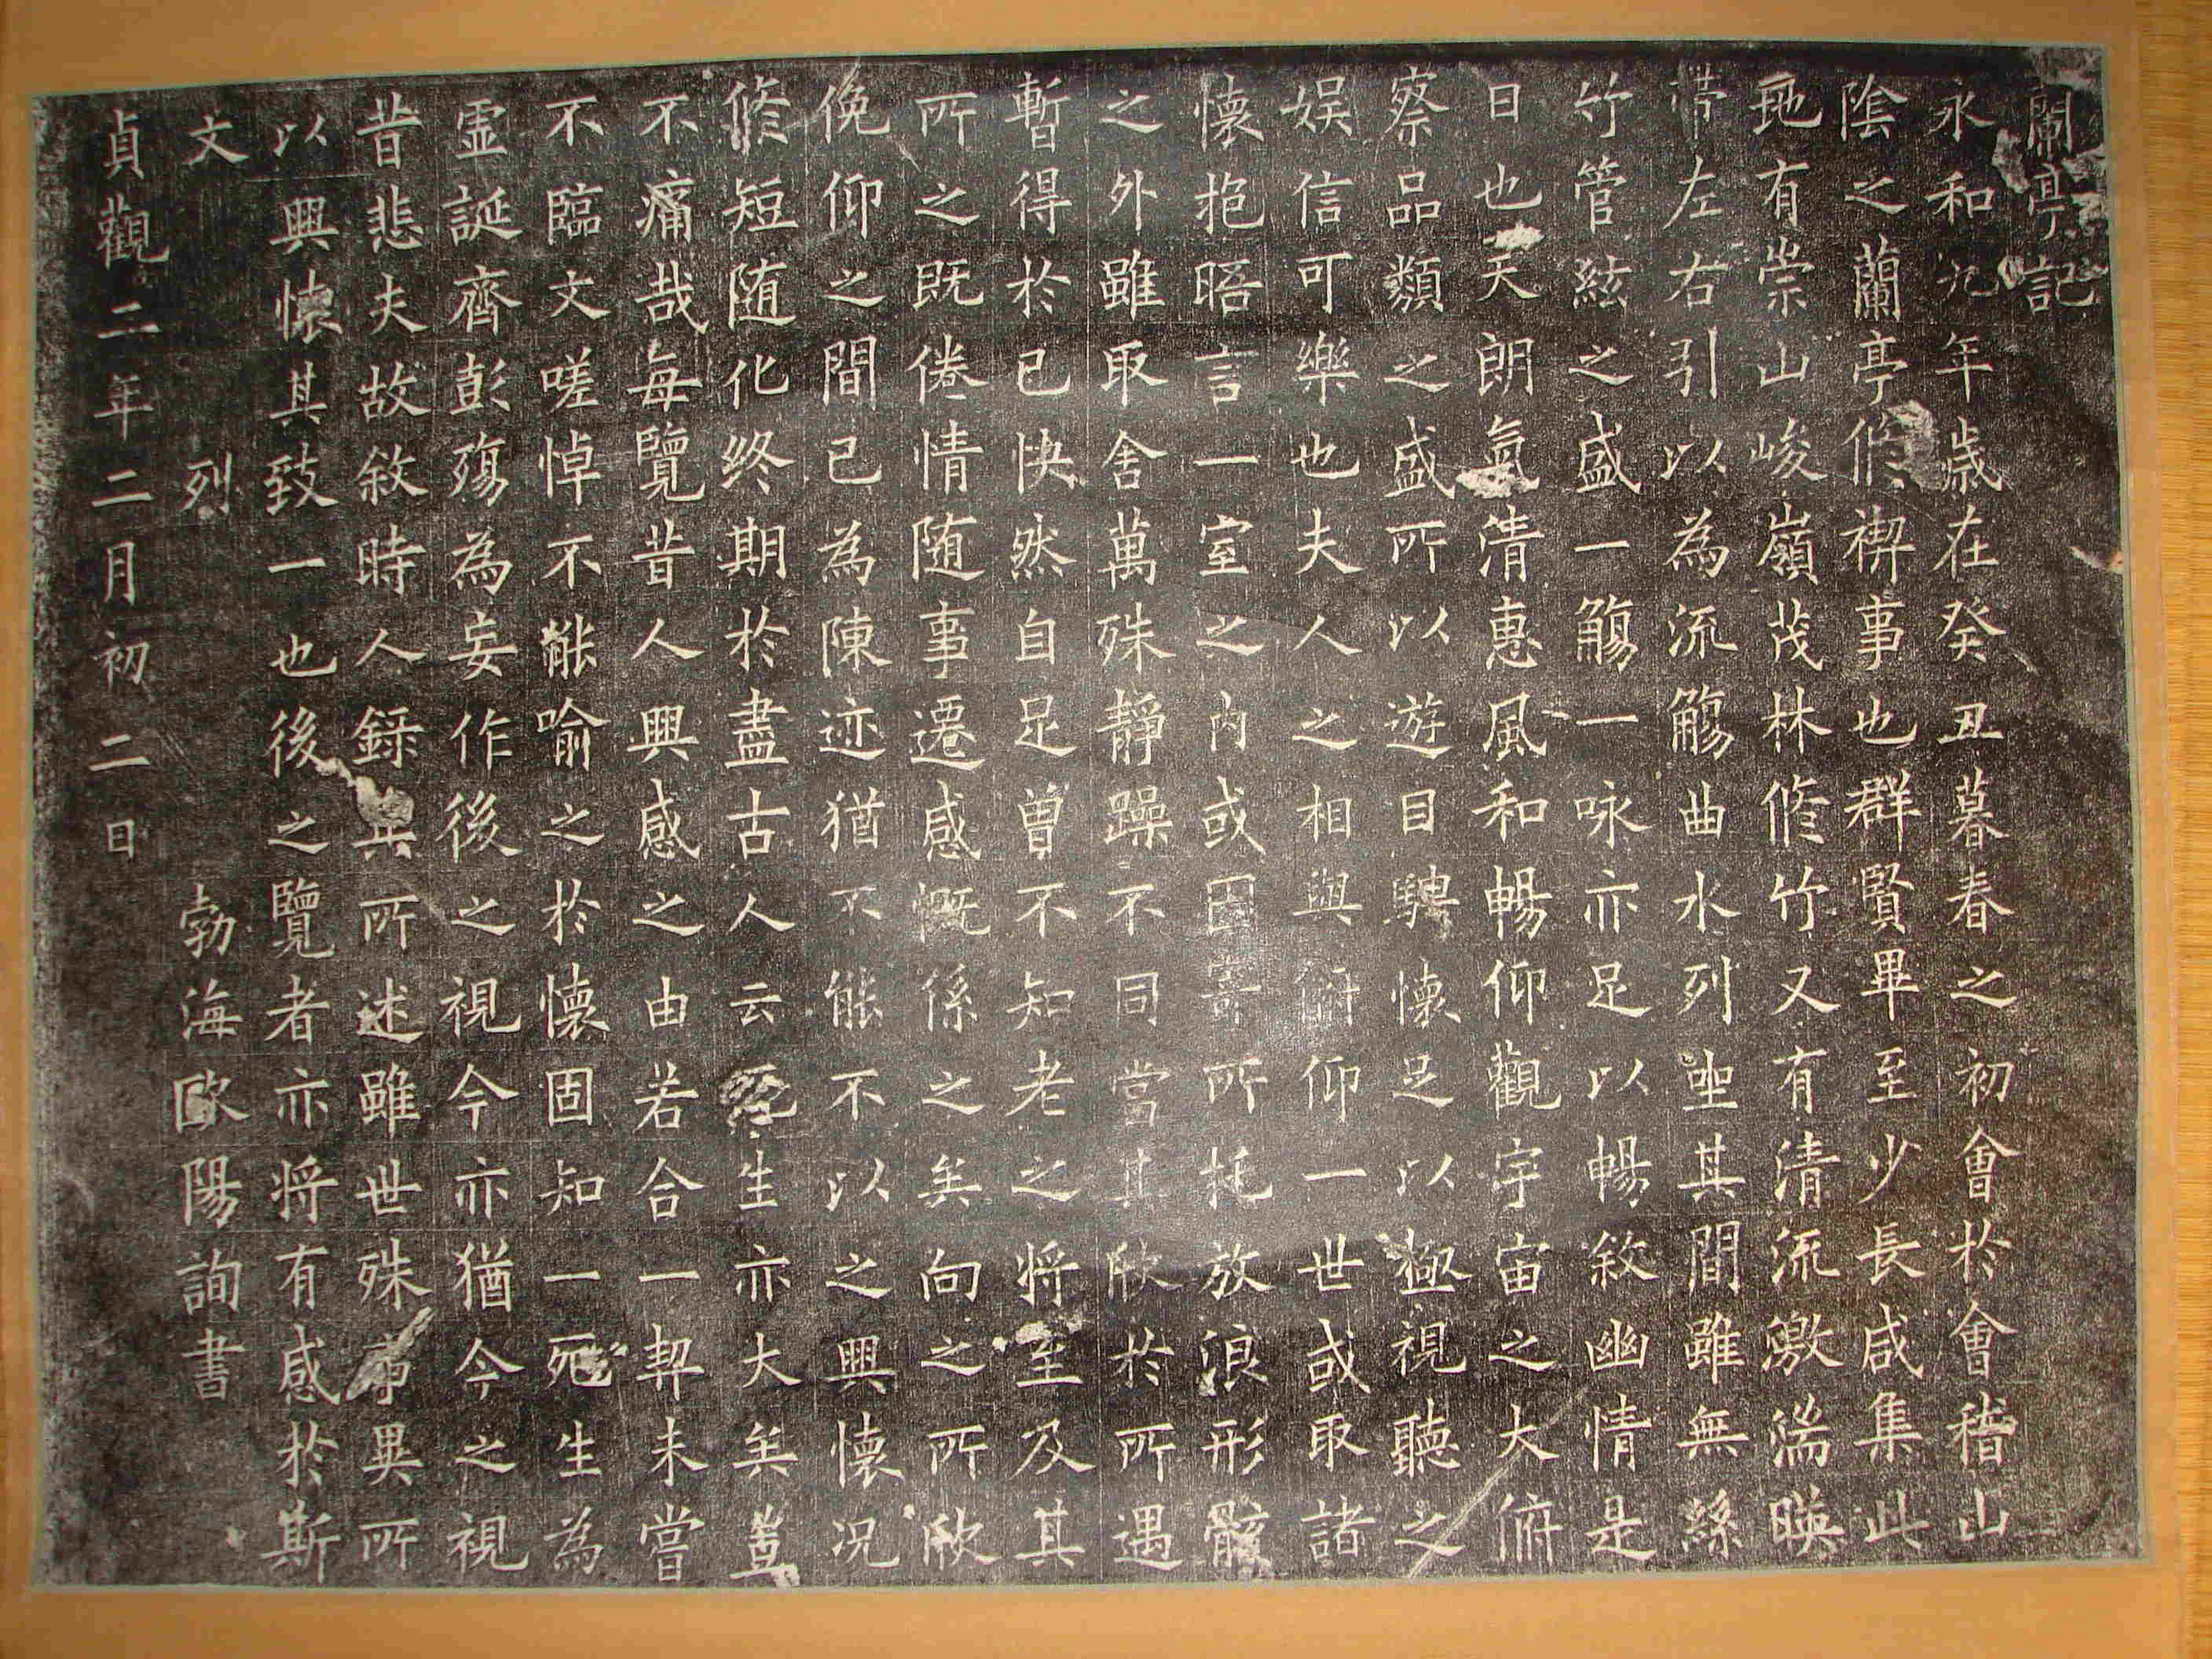 蘭亭記
永和九年歲在癸丑暮春之初會於會稽山
陰之蘭亭脩禊事也群賢畢至少長咸集此
地有崇山峻嶺茂林脩竹又有清流激湍暎
帶左右引以為流觴曲水列坐其間雖無絲
竹管絃之盛一觴一咏亦足以暢敘幽情是
日也天朗氣清惠風和暢仰觀宇宙之大俯
察品類之盛所以遊目騁懷足以極視聽之
娛信可樂也夫人之相與俯仰一世或取諸
懷抱晤言一室之內或因寄所托放浪形骸
之外雖取舍萬殊靜躁不同當其欣於所遇
暫得於己快然自足曾不知老之將至及其
所之既倦情随事遷感慨係之矣向之所欣
俛仰之間已為陳迹猶不能不以之興懷况
脩短随化終期於盡古人云死生亦大矣豈
不痛哉每覽昔人興感之由若合一契未嘗
不臨文嗟悼不能喻之於懷固知一死生為
虛誕齊彭殤為妄作後之視今亦猶今之視
昔悲夫故敘時人錄其所述雖世殊事異所
以興懷其致一也後之覽者亦將有感於斯
文 烈 勃海歐陽詢書
貞觀二年二月初二日